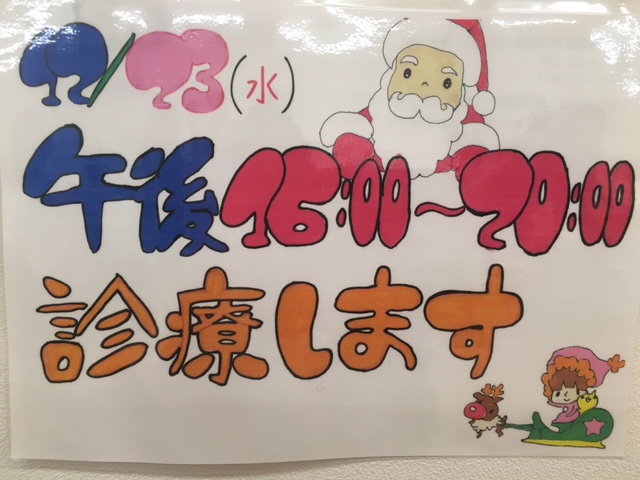 12/23(水)
午後16:00～20:00
診療します